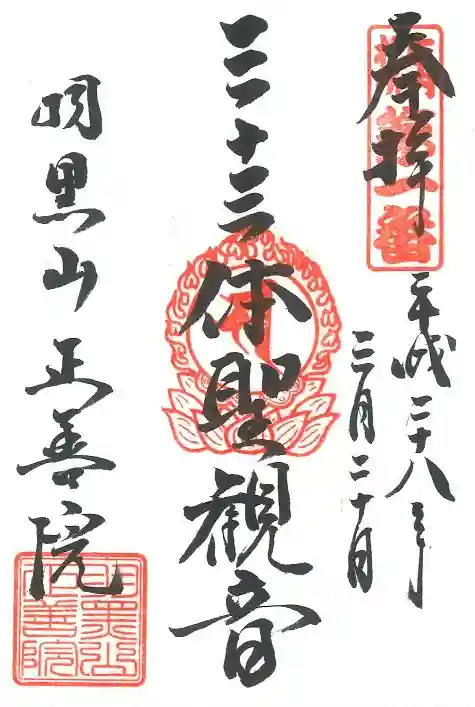 奉拝
第一番
平成二十八年
三月二十日
三十三体聖観音
羽黒山 正善院
羽黒山
正善院